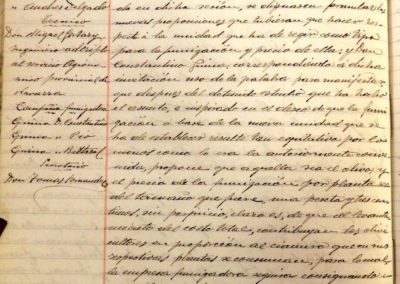 Técnico
Don Miguel
Ingeniero adscripto
al servicio Agronó-
mico provincial de
Navarra
Compañía fumigadora
Química de Constantino
Química
Química
Secretario
Don Tomás Fernandez
en dicha sesión, se dignasen formular las
nuevas proposiciones que tubieran que hacer res-
pecto á la unidad que ha de regir como tipo
para la fumigación y precio de ella; y Don
Constantino correspondiendo á dicha
invitación uso de la palabra para manifestar
que despues del detenido estudio que ha hecho
el asunto, é inspirado en el deseo de que la fumi-
gación á base de la nueva unidad que se
ha de establecer resulte tan equitativa por lo
menos como lo era la anteriormente conve-
nida, propone que aquella sea el olivo, y
el precio de la fumigación por planta sea
del tamaño que fuere, una peseta y tres cén-
timos, sin perjuicio, claro es, de que al levanta-
miento del coste total, contribuyan los olivi-
cultores en proporción al cianuro que en sus
respectivas plantas se consuman, para lo cual
la empresa fumigadora seguirá consignando en